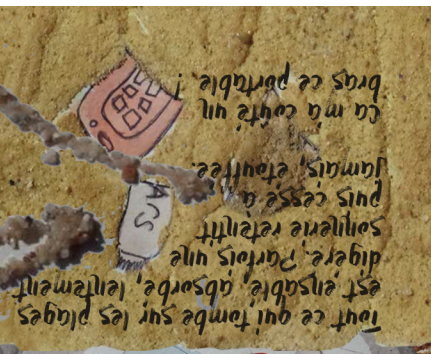 Tout ce qui tombe sur les plages
est ensablé, absorbé, lentement
digéré. Parfois, une
sonnerie retentit
puis cesse à
jamais, étouffée.
Ça m'a coûté un
bras ce portable !
ACS